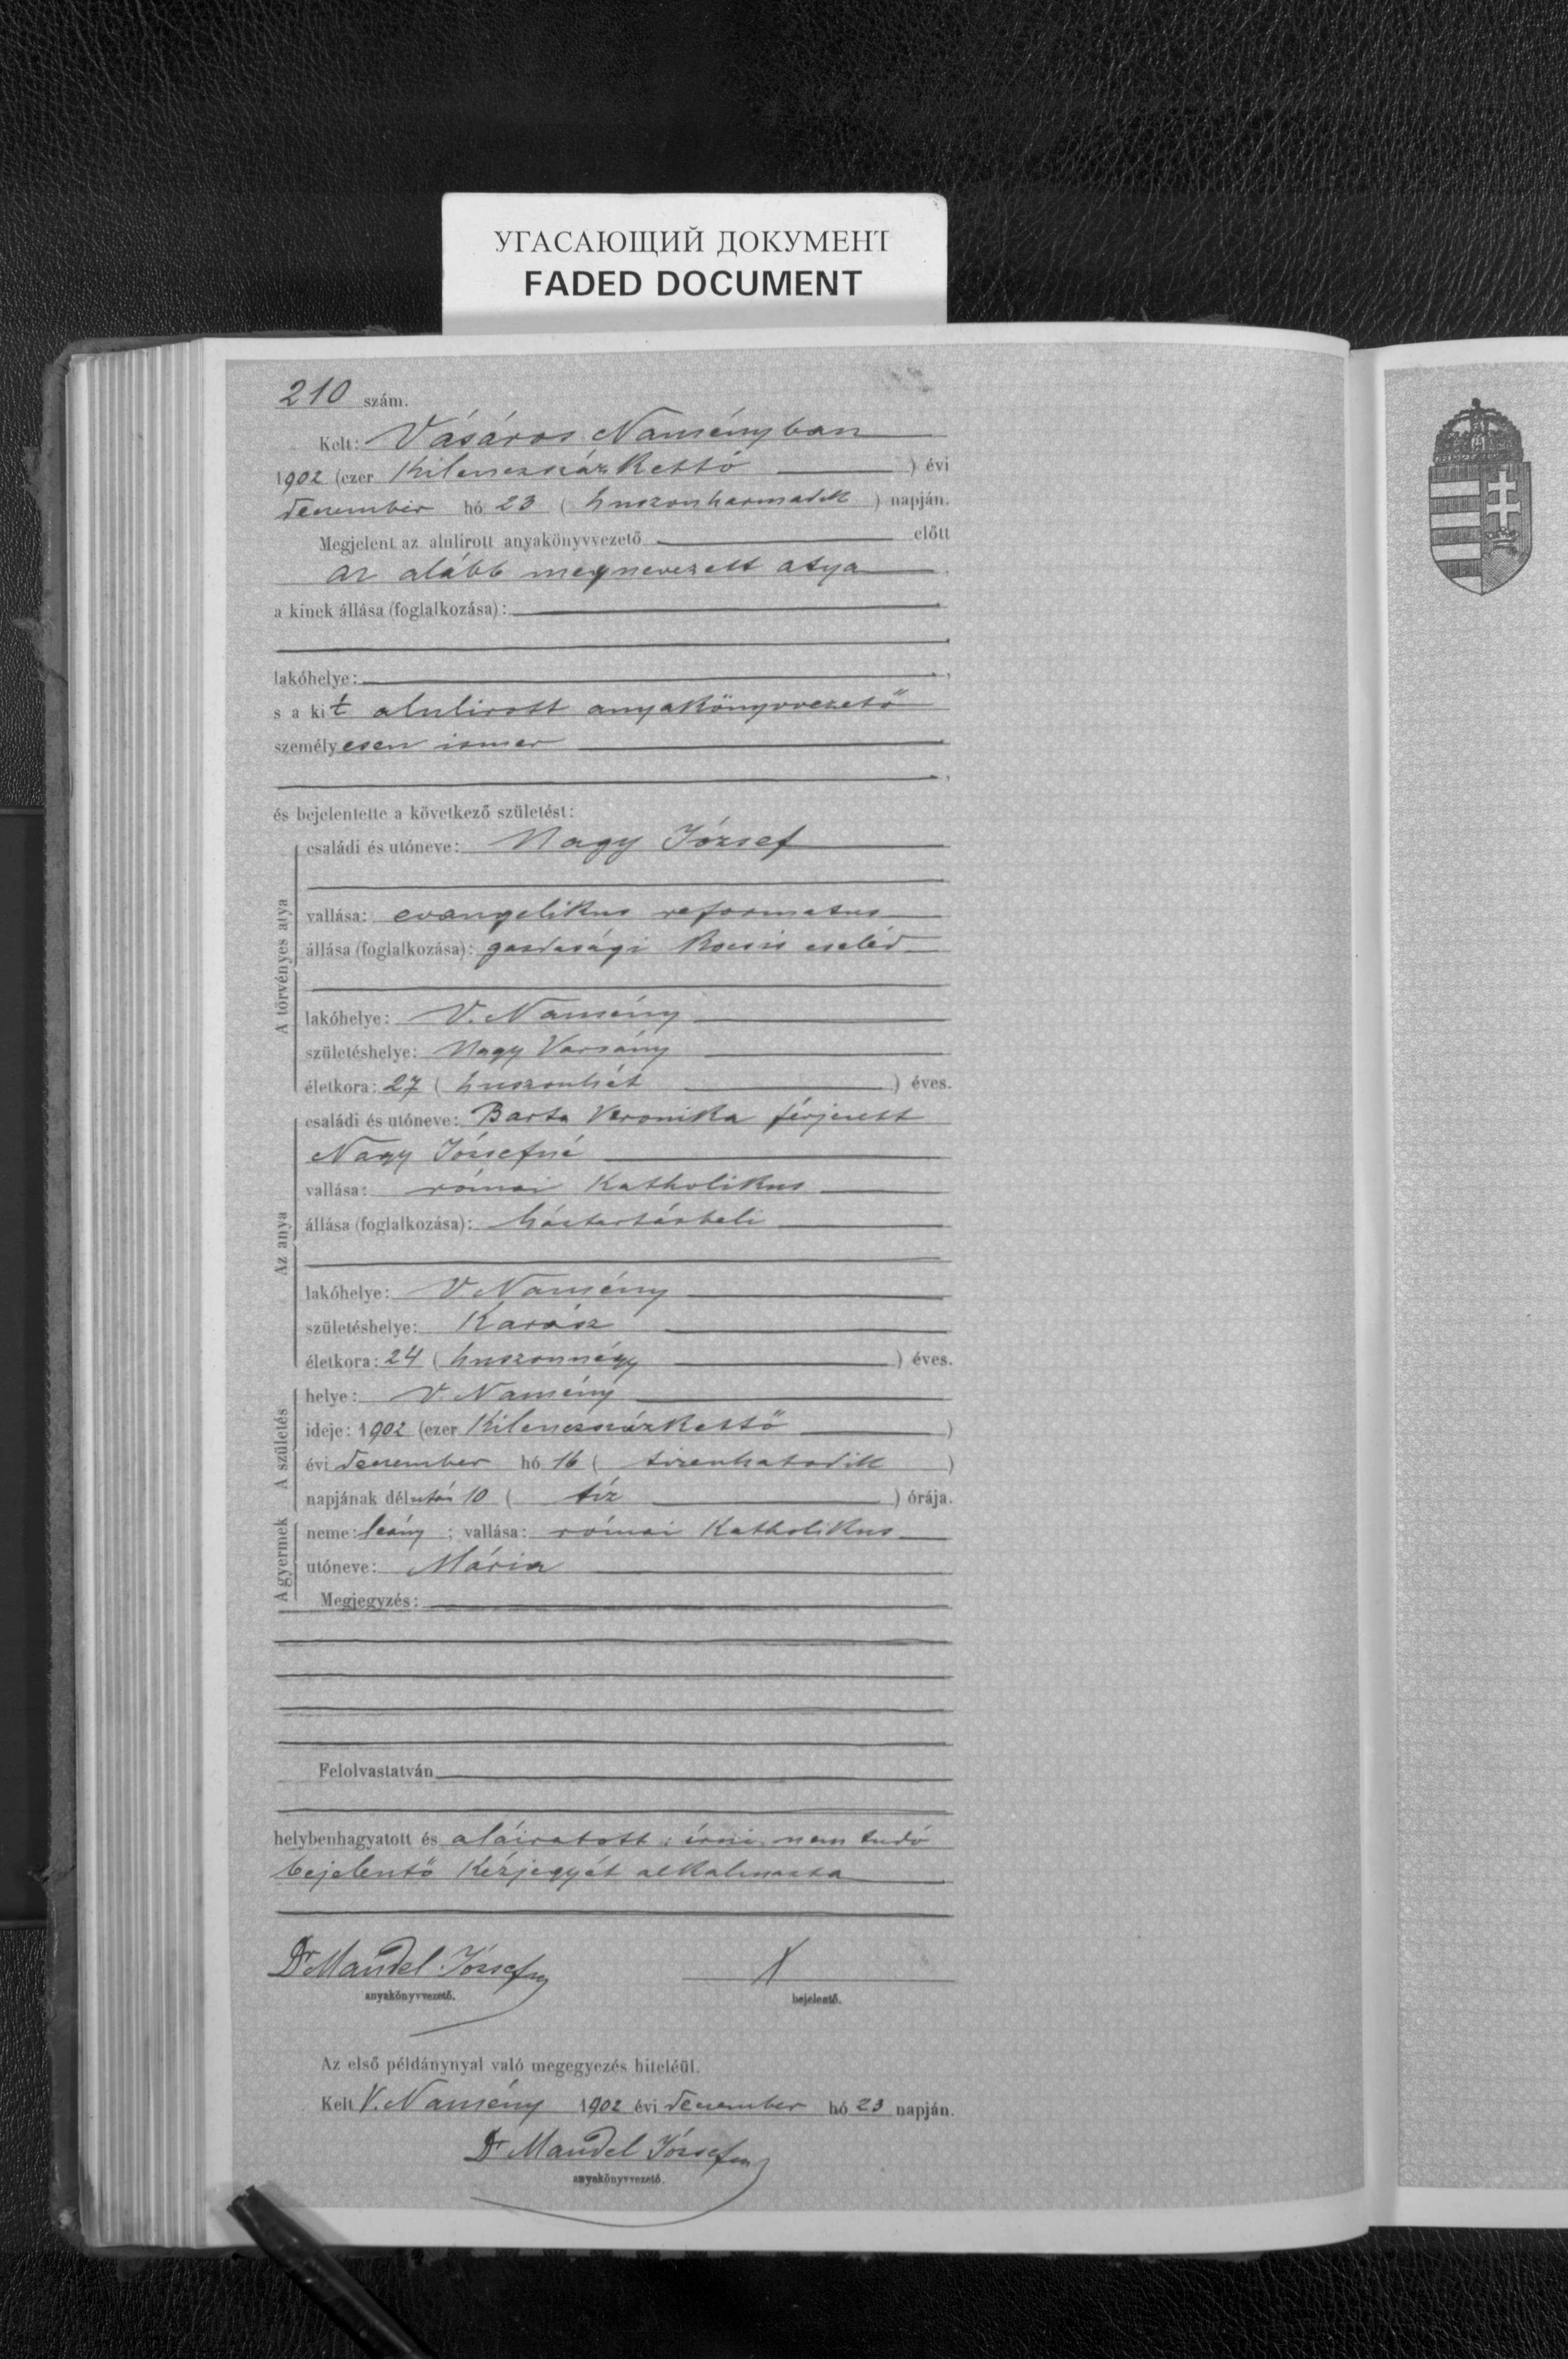 УГАСАЮЩИЙ ДОКУМЕНТ
FADED DOCUMENT
210 szám.
Kelt: Vásáros Naményban
1902 (ezer Kilenczszázkettő) évi
december hó 23 (huszonharmadik) napján.
Megjelent az alulirott anyakönyvvezető előtt
az alább megnevezett atya
a kinek állása (foglalkozása):
lakóhelye:
s a kit alulirott anyakönyvvezető
személyesen ismer
és bejelentette a következő születést:
A törvényes atya
családi és utóneve: Nagy József
vallása: evangelikus reformatus
állása (foglalkozása): gazdasági kocsis cseléd
lakóhelye: V. Namény
születéshelye: Nagy Varsány
életkora: 27 (huszonhét) éves.
Az anya
családi és utóneve: Barta Veronika férjezett
Nagy Józsefné
vallása: római katholikus
állása (foglalkozása): háztartásbeli
lakóhelye: V. Namény
születéshelye: Karász
életkora: 24 (huszonnégy) éves.
A születés
helye: V. Namény
ideje: 1902 (ezer Kilenczszázkettő)
évi december hó 16 (tizenhatodik)
napjának délután 10 (tíz) órája.
A gyermek
neme: leány; vallása: római katholikus
utóneve: Mária
Megjegyzés:
Felolvastatván
helybenhagyatott és aláiratott; írni nem tudó
bejelentő kézjegyét alkalmazta
Dr Mandel József X
anyakönyvvezető. bejelentő.
Az első példánynyal való megegyezés hiteléül.
Kelt V. Namény 1902 évi december hó 23 napján.
Dr Mandel József
anyakönyvvezető.